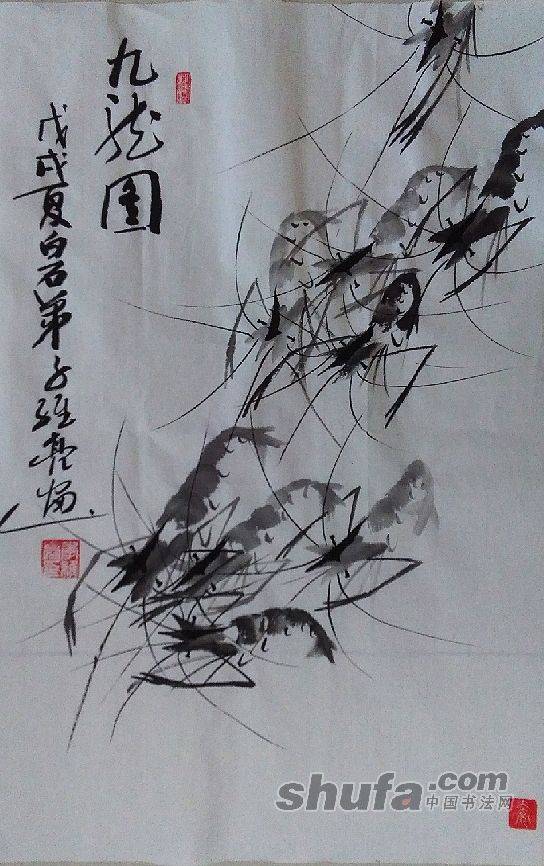 九龙图
戊戌夏白石弟子维亮写
shufa.com
中国书法网